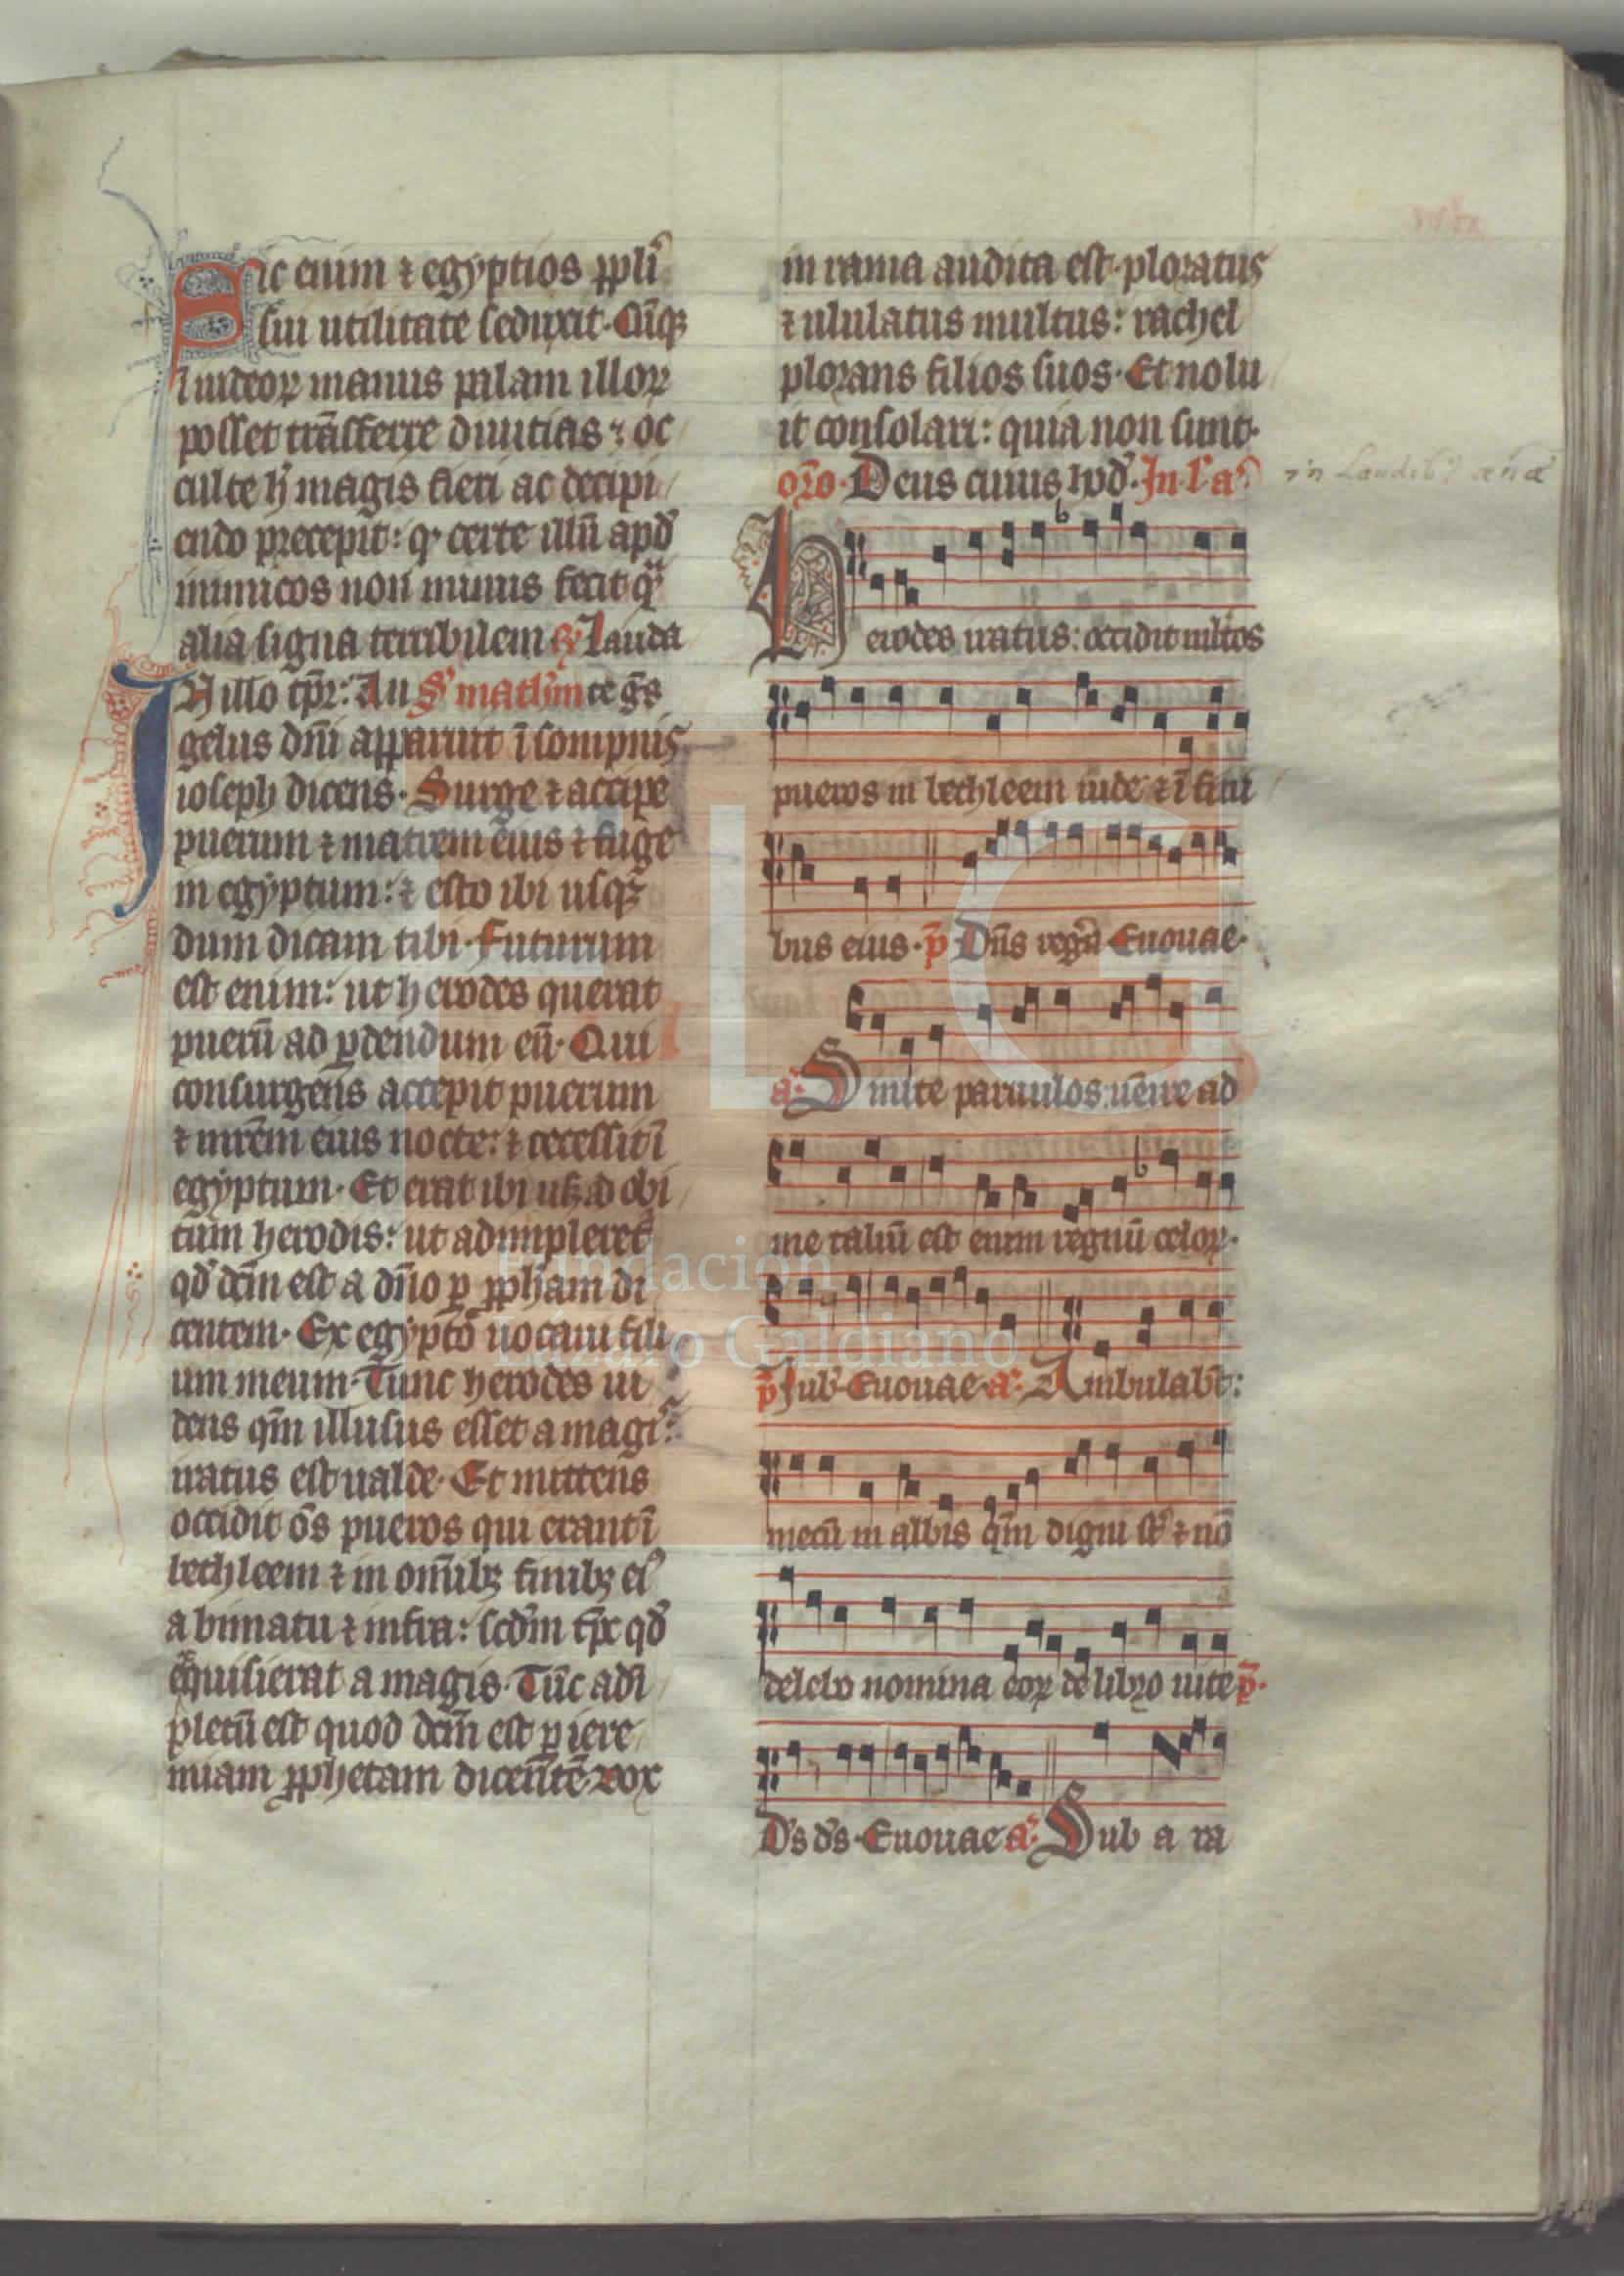 Sic enim ⁊ egyptios ppli
sui utilitate seduxit. Cūqꝫ
iudeoꝝ manus palam illoꝝ
posset trāsferre diuitias: oc
culte h̄ magis fieri ac decipi
endo precepit: qꝛ certe illū apd̄
inimicos non minus fecit qͣ
alia signa terribilem ꝶ Lauda
IN illo tp̄r: An S̄ mathm̄ te gͣs
gelus dn̄i apparuit ī sompnis
ioseph dicens. Surge ⁊ accipe
puerum ⁊ matrem eius ⁊ fuge
in egyptum: ⁊ esto ibi usqꝫ
dum dicam tibi. Futurum
est enim: ut herodes querat
puerū ad ꝑdendum eū. Qui
consurgens accepit puerum
⁊ mr̄em eius nocte: ⁊ secessit ī
egyptum. Et erat ibi usqꝫ ad obi
tum herodis: ut adimpleret̉
qd̄ dc̄m est a dn̄o ꝑ ꝓph̄am di
centem. Ex egypto uocaui fili
um meum. Tunc herodes ui
dens qm̄ illusus esset a magis:
iratus est ualde. Et mittens
occidit ōs pueros qui erant ī
bethleem ⁊ in omībꝫ finibꝫ eiꝰ
a bimatu ⁊ infra: scd̄m tp̄s qd̄
exquisierat a magis. Tūc adī
pletū est quod dc̄m est ꝑ iere
miam ꝓphetam dicentē. Vox
in rama audita est. ploratus
⁊ ululatus multus: rachel
plorans filios suos. Et nolu
it consolari: quia non sunt.
or̄o. Deus cuius hod̉. In. l. aͣ
in Laudibꝰ anā
Herodes iratus: occidit multos
pueros in bethleem iude ⁊ ī fini
bus eius. p̄ Dn̄s regn̄ Euouae.
aͣ Sinite paruulos uenire ad
me taliū est enim regnū celoꝝ.
p̄ Iub. Euouae. aͣ. Ambulabt̄:
mecū in albis qm̄ digni st̄ ⁊ nō
delebo nomina eoꝝ de libro uite p̄.
Ds̄ ds̄. Euouae aͣ. Sub a ra
Fundación
Lázaro Galdiano